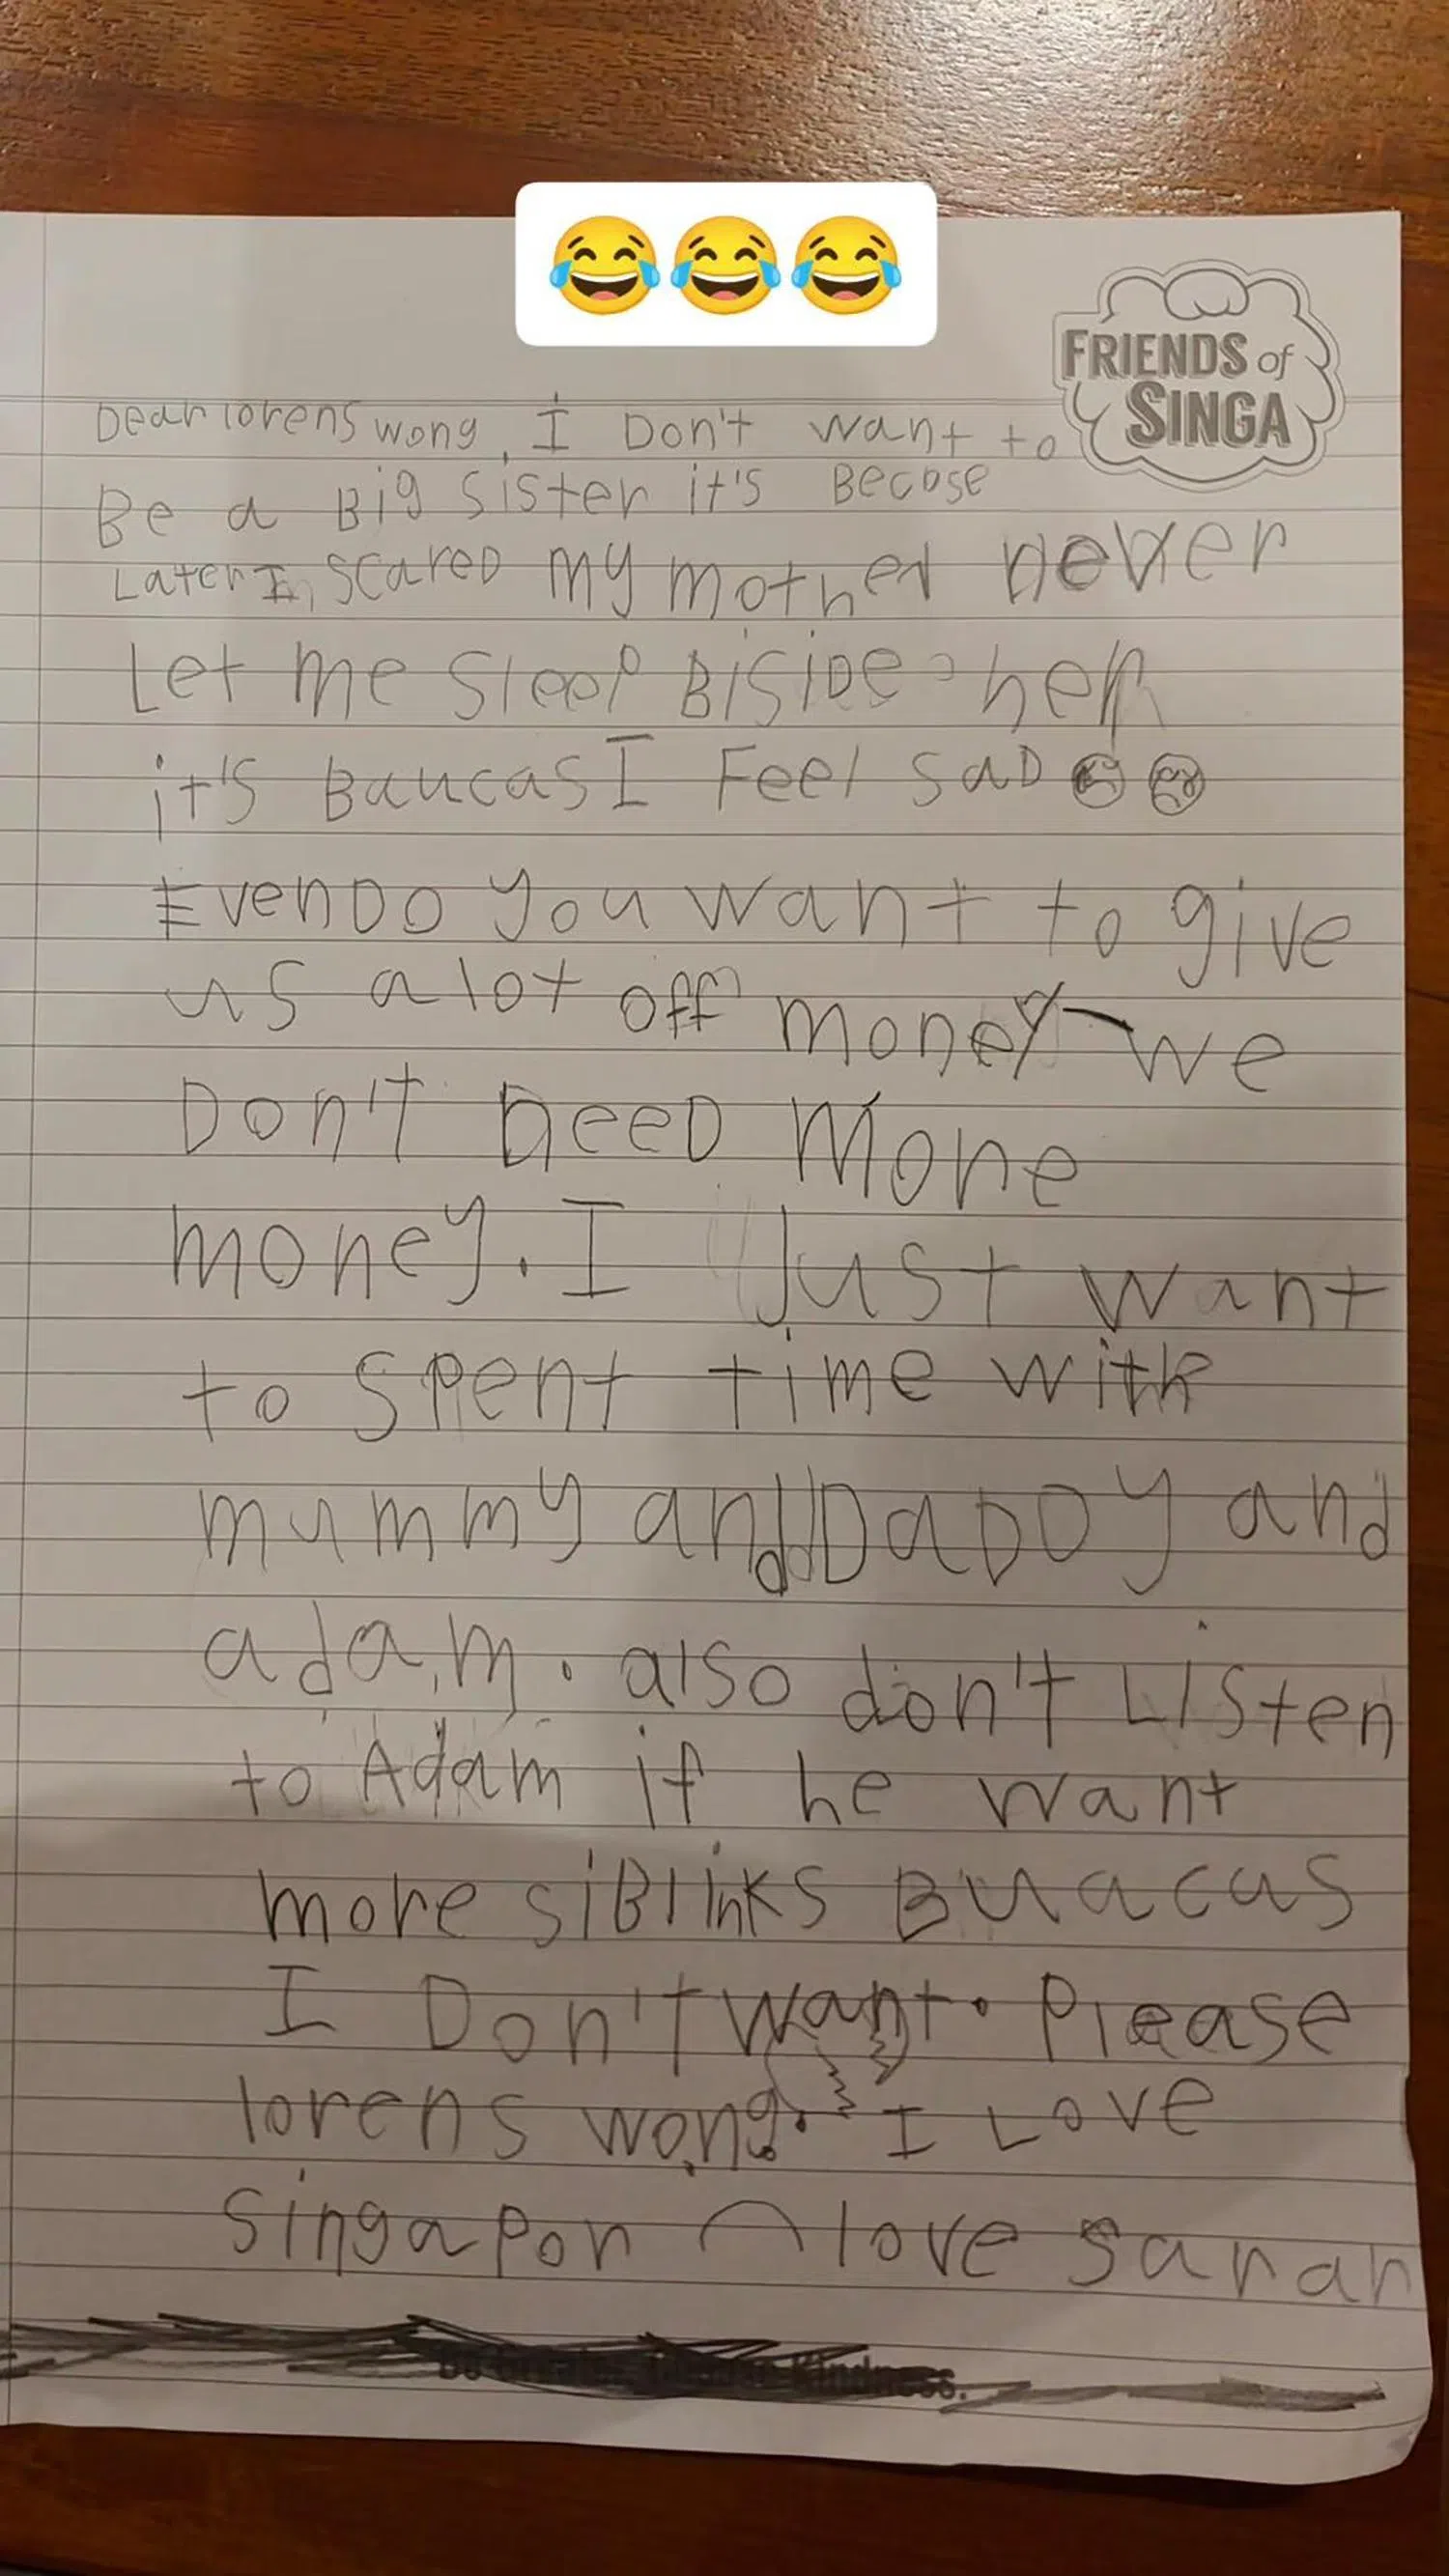 😂😂😂
FRIENDS of
SINGA
Dear lorens wong, I Don't want to
Be a Big sister it's Becose
Later I, scared my mother never
Let me sleep Biside her
it's Baucas I Feel saD
EvenDo you want to give
us a lot off money we
Don't neeD More
money. I Just want
to spent time with
mummy and DaDDy and
adam. also don't Listen
to Adam if he want
more siBlinks Buacus
I Don't want. Please
lorens wong. I Love
singapor love sarah
Kindness.